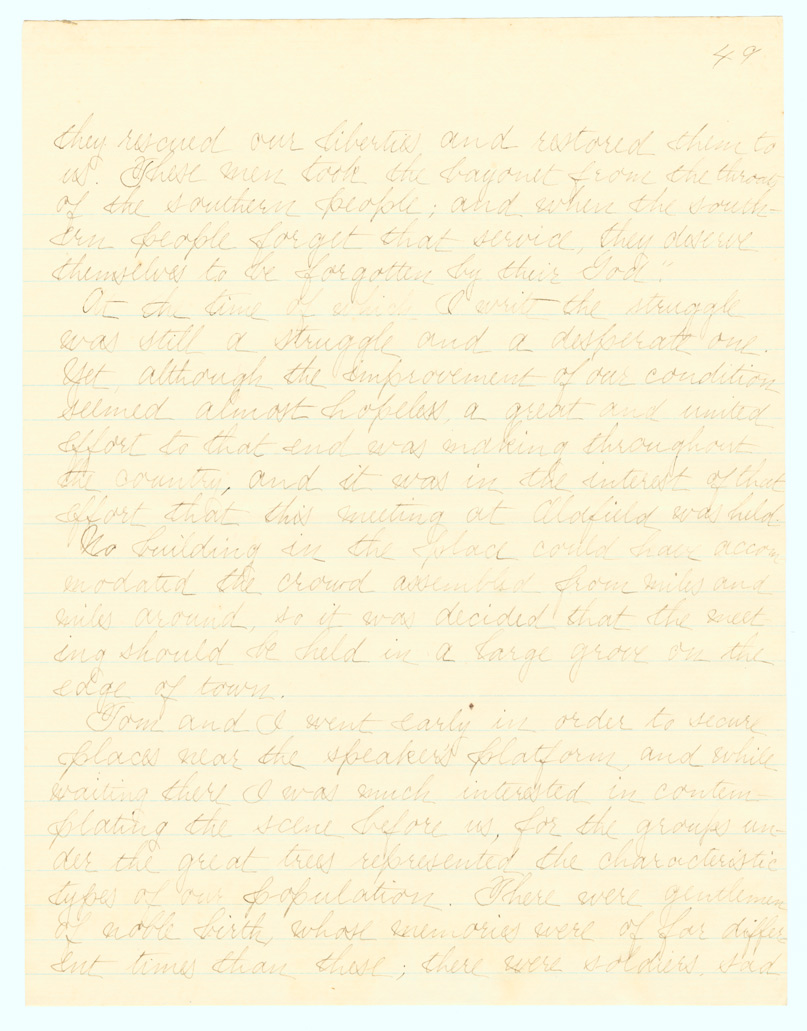 49
they rescued our liberties, and restored them to
us. These men took the bayonet from the throat
of the southern people; and when the south-
ern people forget that service, they deserve
themselves to be forgotten by their God".
At the time of which I write the struggle
was still a struggle and a desperate one.
Yet, although the improvement of our condition
seemed almost hopeless, a great and united
effort to that end was making throughout
the country, and it was in the interest of that
effort that this meeting at Oldfield was held.
No building in the place could have accom
modated the crowd assembled from miles and
miles around, so it was decided that the meet
ing should be held in a large grove on the
edge of town.
Tom and I went early in order to secure
places near the speaker's platform, and while
waiting there I was much interested in contem-
plating the scene before us, for the groups un-
der the great trees represented the characteristic
types of our population. There were gentlemen
of noble birth, whose memories were of far differ-
ent times than these; there were soldiers, sad